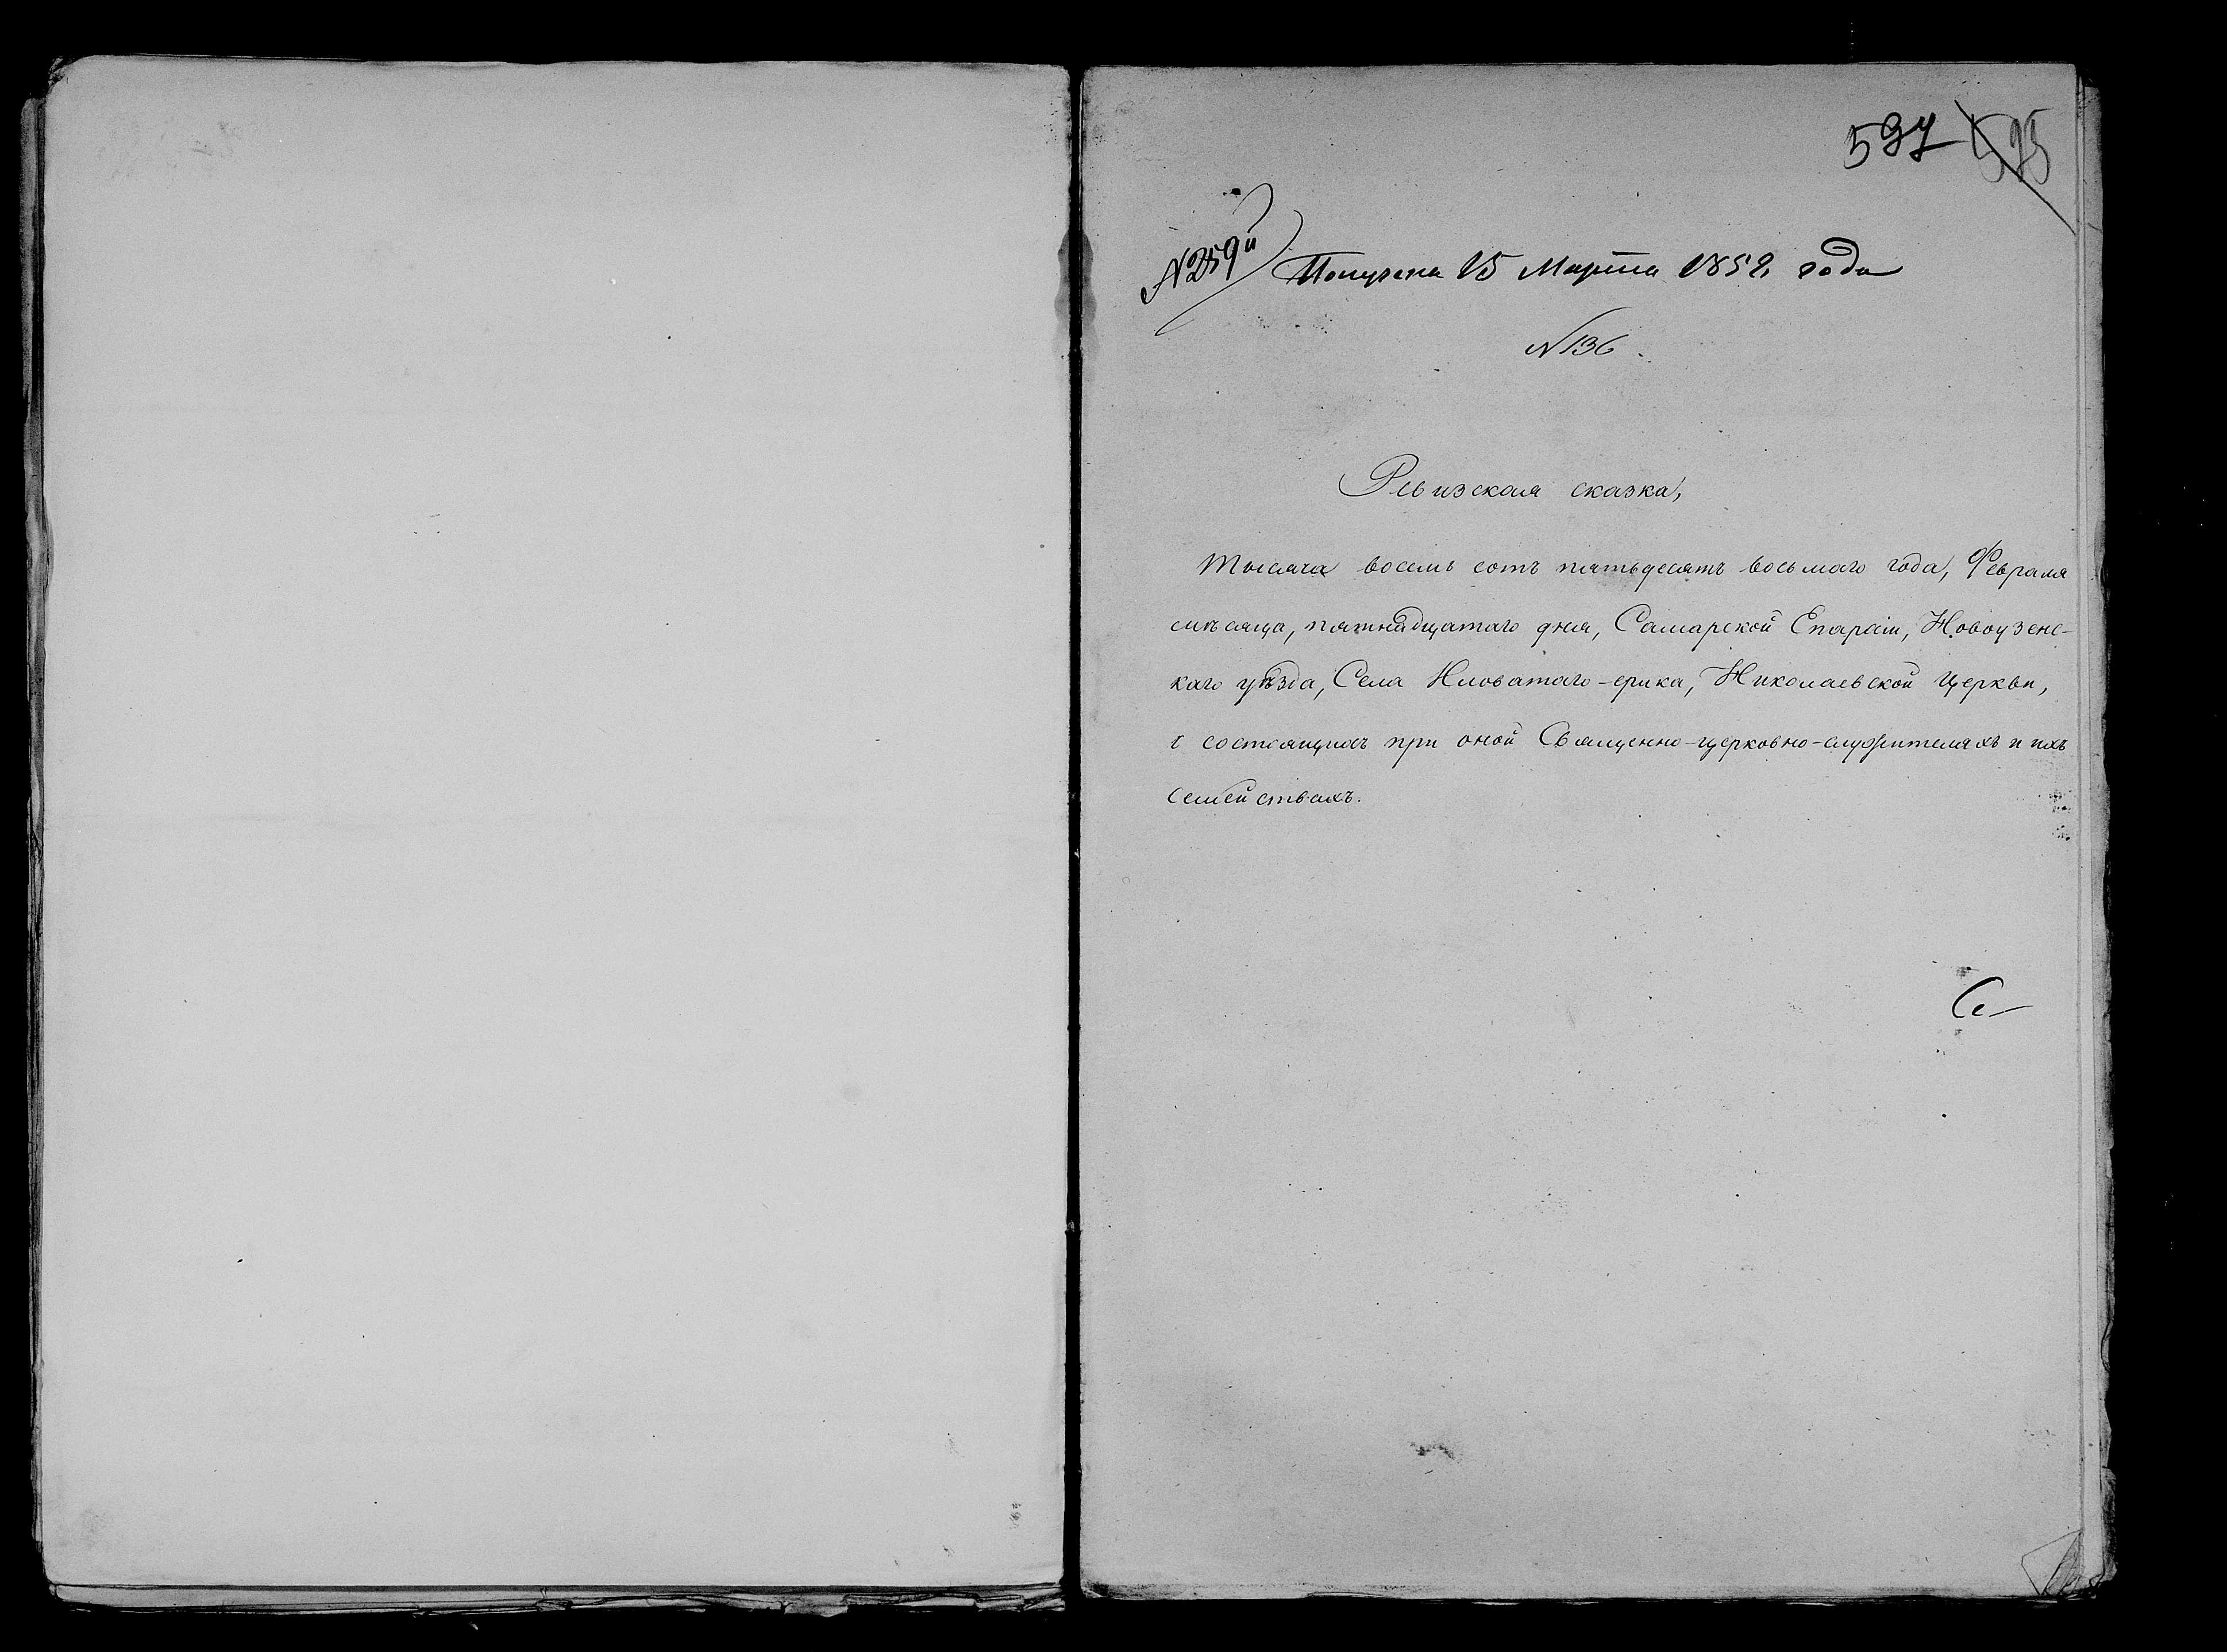 597 595
№ 259й
Получена 15 Марта 1858 года
№ 136.
Ревизская сказка,
Тысяча восемь сотъ пятьдесятъ восьмаго года, Февраля
мѣсяца, пятнадцатаго дня, Самарской Епархіи, Новоузенс-
каго уѣзда, Села Иловатаго-ерика, Николаевской Церкви,
о состоящихъ при оной Священно-церковно-служителяхъ и ихъ
семействахъ.
Се-